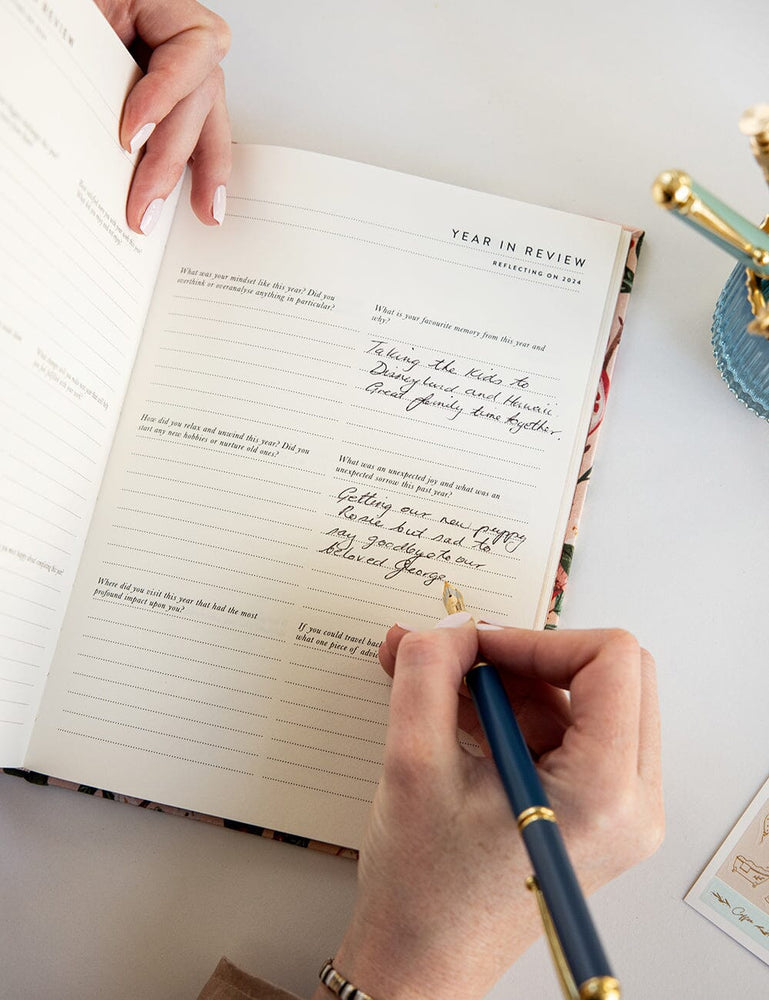 YEAR IN REVIEW
REFLECTING ON 2024
What was your mindset like this year? Did you
overthink or overanalyse anything in particular?
What is your favourite memory from this year and
why?
Taking the kids to
Disneyland and Hawaii.
Great family time together.
How did you relax and unwind this year? Did you
start any new hobbies or nurture old ones?
What was an unexpected joy and what was an
unexpected sorrow this past year?
Getting our new puppy
Rosie but sad to
say goodbye to our
beloved George
Where did you visit this year that had the most
profound impact upon you?
If you could travel back
what one piece of advic